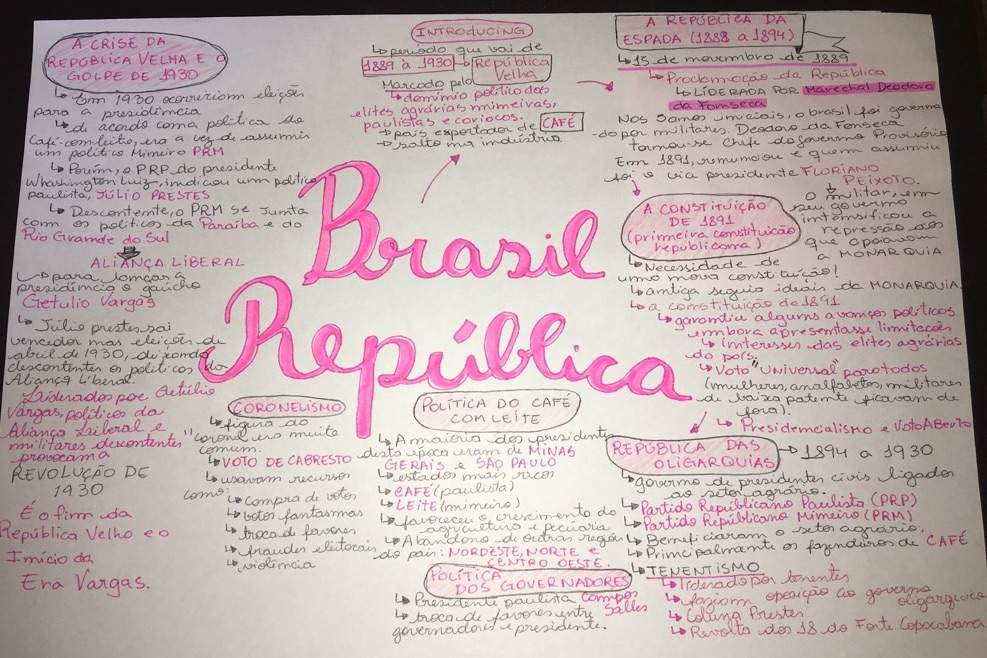 Brasil
República
INTRODUCING
↳ período que vai de
1889 à 1930 → República
Velha
Marcado pelo
↳ domínio político das
elites agrárias mineiras,
paulistas e cariocas.
↳ país exportador de CAFÉ
↳ salto na indústria
A REPÚBLICA DA
ESPADA (1889 a 1894)
↳ 15 de novembro de 1889
↳ Proclamação da República
↳ LIDERADA POR Marechal Deodoro
da Fonseca
Nos 5 anos iniciais, o brasil foi governa
-do por militares. Deodoro da Fonseca
tornou-se Chefe do Governo Provisório
Em 1891, renunciou e quem assumiu
foi o vice presidente FLORIANO
PEIXOTO.
O militar, em
seu governo
intensificou a
repressão aos
que apoiavam
a MONARQUIA
A CONSTITUIÇÃO
DE 1891
(primeira constituição
republicana)
↳ Necessidade de
uma nova constituição!
↳ antiga seguia ideais da MONARQUIA
↳ a constituição de 1891
↳ garantiu alguns avanços políticos
embora apresentasse limitações
↳ interesses das elites agrárias
do país.
↳ Voto "Universal" para todos
(mulheres, analfabetos, militares
de baixa patente ficavam de
fora).
↳ Presidencialismo e Voto Aberto
REPÚBLICA DAS
OLIGARQUIAS → 1894 a 1930
↳ governo de presidentes civis ligados
ao setor agrário.
↳ Partido Republicano Paulista (PRP)
↳ Partido Repúblicano Mineiro (PRM)
↳ Beneficiaram o setor agrário,
↳ Principalmente os fazendeiros de CAFÉ
↳ TENENTISMO
↳ liderado por tenentes
↳ faziam oposição ao governo
oligarquico
↳ Coluna Prestes
↳ Revolta dos 18 do Forte Copacabana
POLÍTICA DO CAFÉ
COM LEITE
↳ A maioria dos presidentes
desta época eram de MINAS
GERAIS e SÃO PAULO
↳ estados mais ricos
↳ CAFÉ (paulista)
↳ LEITE (mineiro)
↳ favoreceu o crescimento da
agricultura e pecuária
↳ Abandono de outras regiões
do país: NORDESTE, NORTE e
CENTRO OESTE.
POLÍTICA
DOS GOVERNADORES
↳ Presidente paulista Campos
Salles
↳ troca de favores entre
governadores e presidente.
CORONELISMO
↳ figura do
"coronel" era muito
comum.
↳ VOTO DE CABRESTO
↳ usavam recursos
como:
↳ compra de votos
↳ votos fantasmas
↳ troca de favores
↳ fraudes eleitorais
↳ violência
A CRISE DA
REPÚBLICA VELHA E O
GOLPE DE 1930
↳ Em 1930 ocorreriam eleições
para a presidência
↳ de acordo com a política do
Café-com-leite, era a vez de assumir
um político Mineiro PRM
↳ Porém, o PRP do presidente
Whashington Luiz, indicou um político
paulista, JÚLIO PRESTES
↳ Descontente, o PRM se junta
com os políticos da Paraíba e do
Rio Grande do Sul
ALIANÇA LIBERAL
↳ para lançar à
presidência o gaúcho
Getulio Vargas
↳ Júlio prestes sai
vencedor nas eleições de
abril de 1930, deixando
descontentes os políticos da
Aliança Liberal.
Liderados por Getúlio
Vargas, políticos da
Aliança Liberal e
militares descontentes
provocam a
REVOLUÇÃO DE
1930
É o fim da
República Velha e o
Início da
Era Vargas.